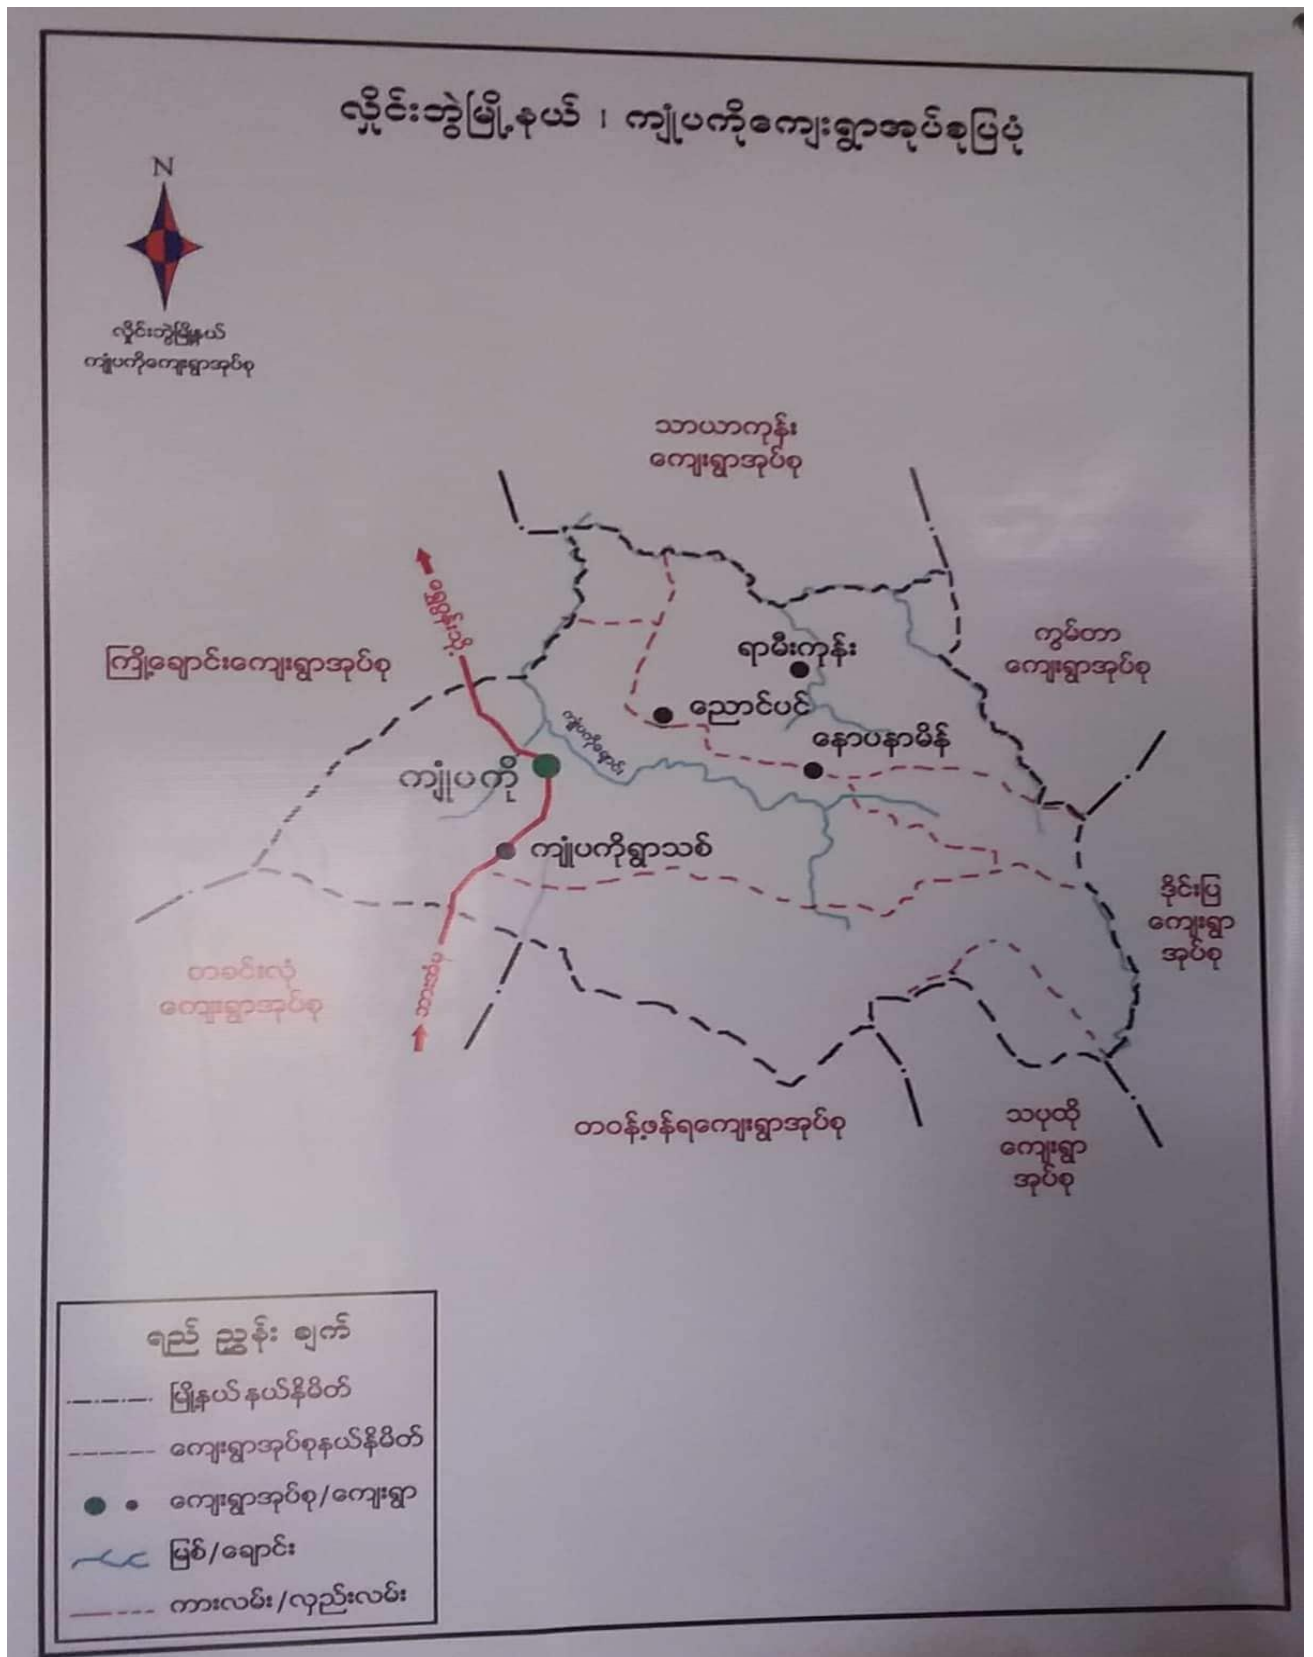 လှိုင်းဘွဲမြို့နယ် ၊ ကျုံပကိုကျေးရွာအုပ်စုပြပုံ
N
လှိုင်းဘွဲမြို့နယ်
ကျုံပကိုကျေးရွာအုပ်စု
သာယာကုန်း
ကျေးရွာအုပ်စု
ရွှေဝွန်းသို့
ကြို့ချောင်းကျေးရွာအုပ်စု
ကွမ်တာ
ကျေးရွာအုပ်စု
ရာမီးကုန်း
ညောင်ပင်
နောပနာမိန်
ကျုံပကိုချောင်း
ကျုံပကို
ကျုံပကိုရွာသစ်
ဒိုင်းပြ
ကျေးရွာ
အုပ်စု
တခင်းလုံ
ကျေးရွာအုပ်စု
ဘားအံမှ
တဝန့်ဖန်ရကျေးရွာအုပ်စု
သပုထို
ကျေးရွာ
အုပ်စု
ရည် ညွှန်း ချက်
မြို့နယ်နယ်နိမိတ်
ကျေးရွာအုပ်စုနယ်နိမိတ်
ကျေးရွာအုပ်စု/ကျေးရွာ
မြစ်/ချောင်း
ကားလမ်း/လှည်းလမ်း